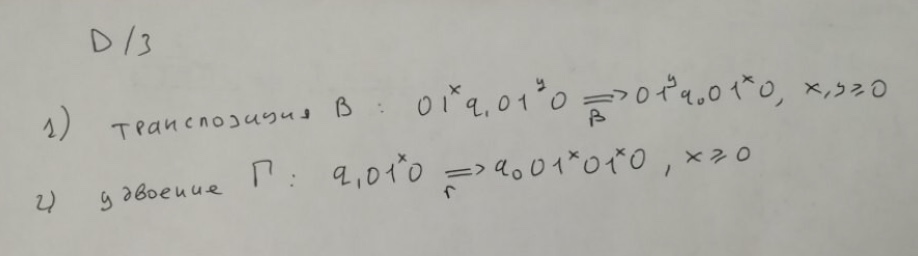 D/З
1) транспозиция В : 01ˣq₁01ʸ0 ⇒ 01ʸq₀01ˣ0, x,y≥0
В
2) удвоение Г : q₁01ˣ0 ⇒ q₀01ˣ01ˣ0, x≥0
Г